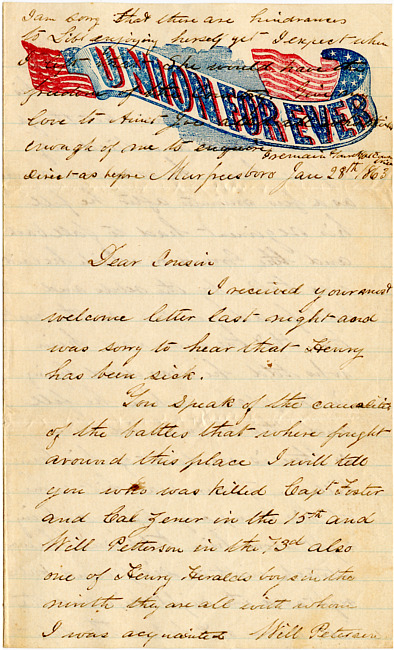 I am Sorry that there are hindrances
to Deb enjoying herself yet I expect when
I would have the
of
UNION FOR EVER
love to Aunt
enough of me to enquire I remain
direct as before Murfreesboro Jan 28th, 1863
Dear Cousin
I received your most
welcome letter last night and
was sorry to hear that Henry
has been sick.
You speak of the causalities
of the battles that where fought
around this place I will tell
you who was killed Capt Foster
and Cal Zener in the 15th and
Will Petterson in the 73d also
one of Henry Heralds boys in the
ninth they are all with whom
I was acquainted Will Peterson